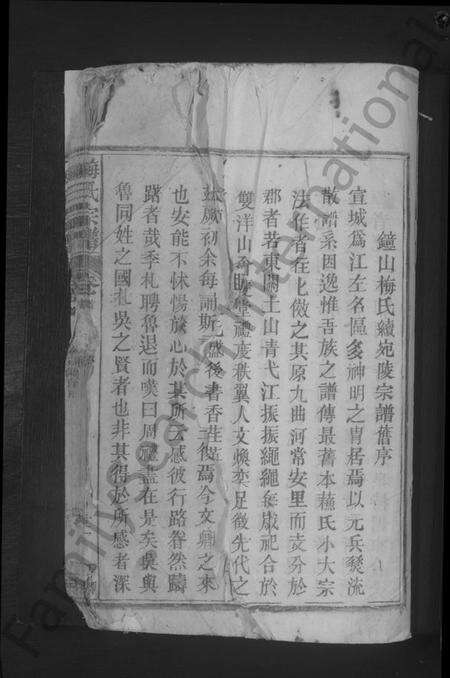 鐘山梅氏續宛陵宗譜舊序
宣城為江左名區多神明之冑居焉以元兵燹流
散譜系因逸惟吾族之譜傳最舊本蘇氏小大宗
法作者在上倣之其原九曲河常安里而支分於
郡者若東關土山青弋江振振繩繩每歲祀合於
雙洋山介眎堂禮度秩翼人文煥奕足徵先代之
厥初余每誦斯 後書香 復焉今文卿之來
也安能不怵惕於心於其所云感彼行路眷然躊
躇者哉季札聘魯退而嘆曰周禮盡在是矣吳與
魯同姓之國札吳之賢者也非其得於所感者深
梅氏宗譜
FamilySearch International